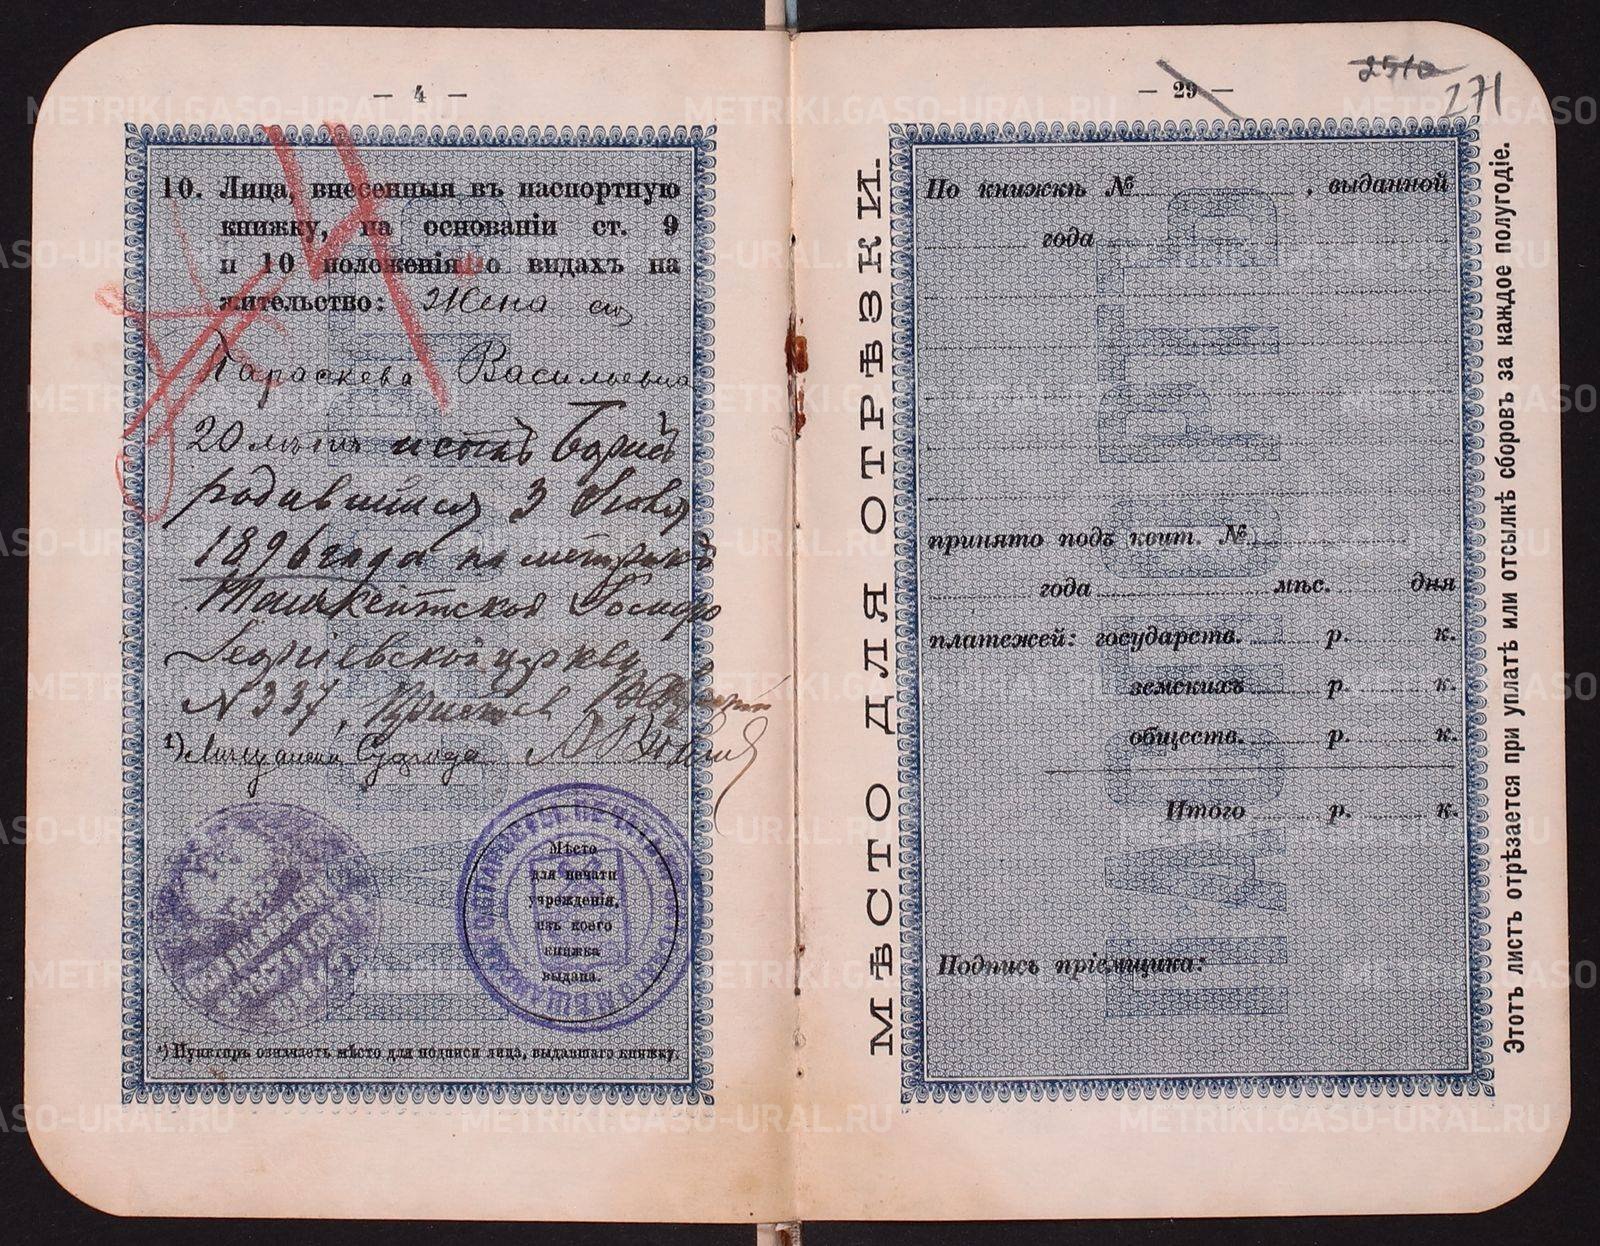 — 4 —
10. Лица, внесенныя въ паспортную
книжку, на основаніи ст. 9
и 10 положенія о видахъ на
жительство: Жена его
Параскева Васильевна
20 лѣтъ и сынъ Борисъ
родившійся 3 Июня
1896 года по метрикѣ
Ташкентской
Георгіевской церкви
№ 337, Приставъ
¹) Мѣщанскій Староста
Мѣсто
для печати
учрежденія,
изъ коего
книжка
выдана.
¹) Пунктиръ означаетъ мѣсто для подписи лица, выдавшаго книжку.
— 29 —
2510
271
МѢСТО ДЛЯ ОТРѢЗКИ.
По книжкѣ № , выданной
года
принято подъ квит. №
года мѣс. дня
платежей: государств. р. к.
земскихъ р. к.
обществ. р. к.
Итого р. к.
Подпись пріемщика:
ПАСПОРТЪ
Этотъ листъ отрѣзается при уплатѣ или отсылкѣ сборовъ за каждое полугодіе.
METRIKI.GASO-URAL.RU